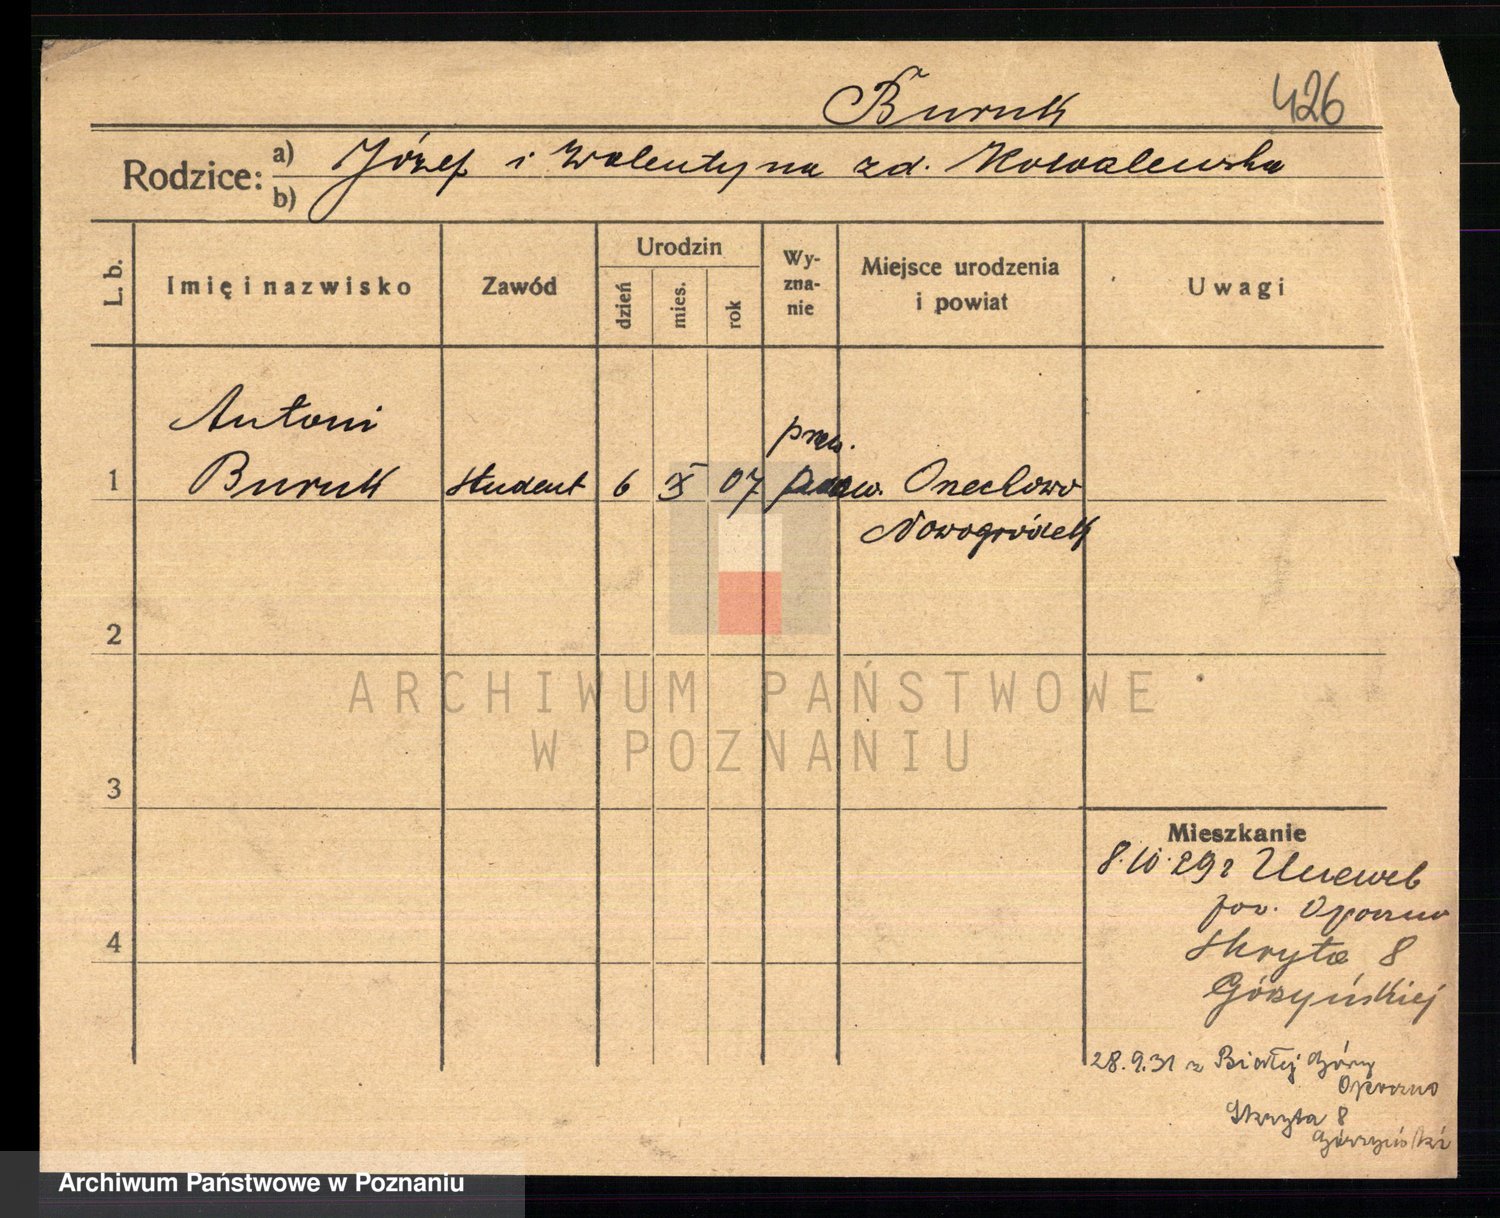 Buruk
426
Rodzice:
a) Józef i Walentyna zd. Kowalewska
b)
L. b.
Imię i nazwisko
Zawód
Urodzin
dzień
mies.
rok
Wy-
zna-
nie
Miejsce urodzenia
i powiat
Uwagi
Antoni
praw.
1 Buruk student 6 X 07 Orzechowo
Nowogródek
2
3
4
Mieszkanie
8.10.29 r
pow. Opoczno
Skryta 8
Górzyńskiej
28.9.31 z Białej Góry
Opoczno
Skryta 8
ARCHIWUM PAŃSTWOWE
W POZNANIU
Archiwum Państwowe w Poznaniu